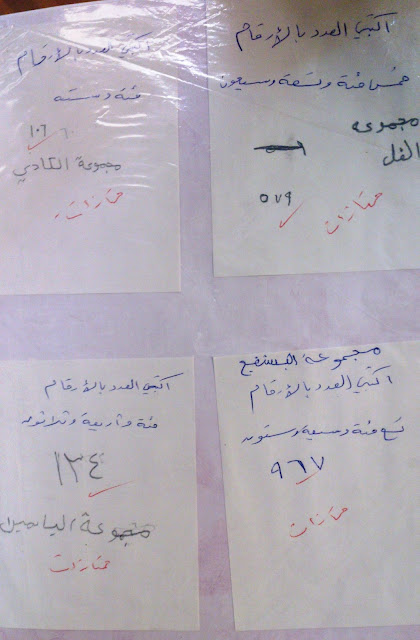 اكتبي العدد بالأرقام
خمس مئة وتسعة وسبعون
مجموعة
الفل
٥٧٩
ممتازات
اكتبي العدد بالأرقام
مئة وستة
١٠٦
مجموعة الكادي
ممتازات
مجموعة البنفسج
اكتبي العدد بالأرقام
تسع مئة وسبعة وستون
٩٦٧
ممتازات
اكتبي العدد بالأرقام
مئة وأربعة وثلاثون
١٣٤
مجموعة الياسمين
ممتازات